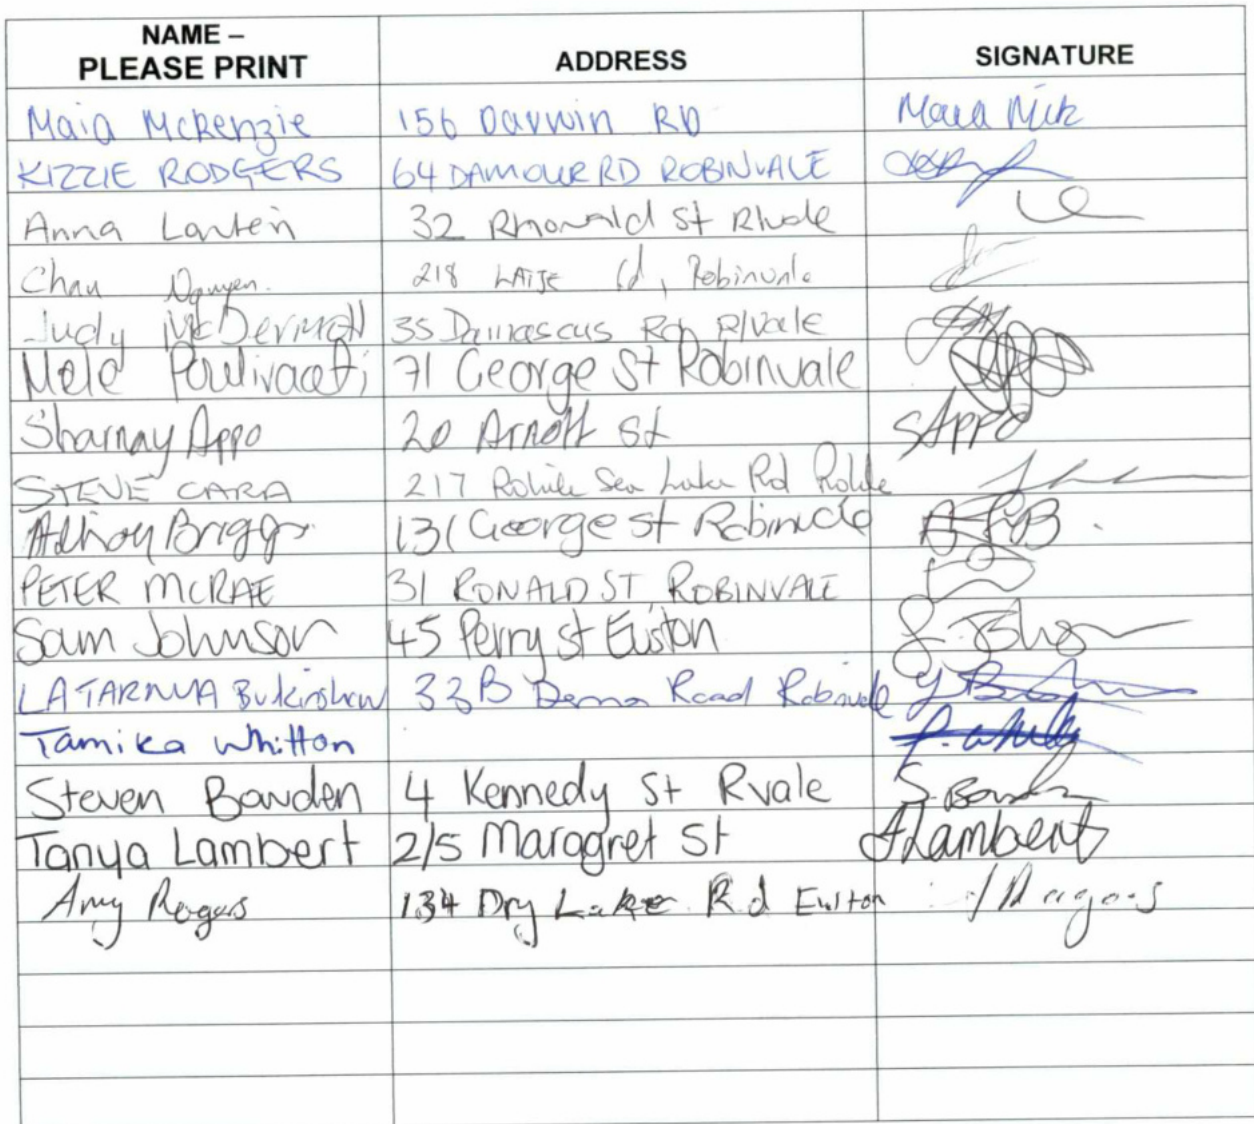 NAME –
PLEASE PRINT ADDRESS SIGNATURE
Maia McKenzie 156 Darwin RD Maia Mck
KIZZIE RODGERS 64 DAMOUR RD ROBINVALE
Anna Lauten 32 St Rvale
Chau Nguyen. 218 LATJE rd, Robinvale
Judy McDermott 35 Damascus Rd R/Vale
Mele 71 George St Robinvale
Sharnay Appo 20 Arnott St SAppo
STEVE CARA 217 Sea Lake Rd
Briggs 131 George St Robinvale
PETER MCRAE 31 RONALD ST, ROBINVALE
Sam Johnson 45 Perry st Euston
LATARNYA 33B Road Robinvale
Tamika Whitton
Steven Bowden 4 Kennedy St Rvale
Tanya Lambert 2/5 Maragret St TLambert
Amy Rogers 134 Dry Lake Rd Euston